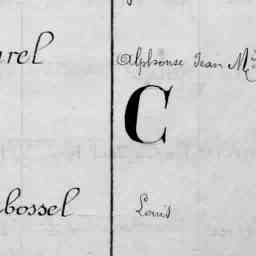 rel Alphonse Jean M
C
bossel Louis